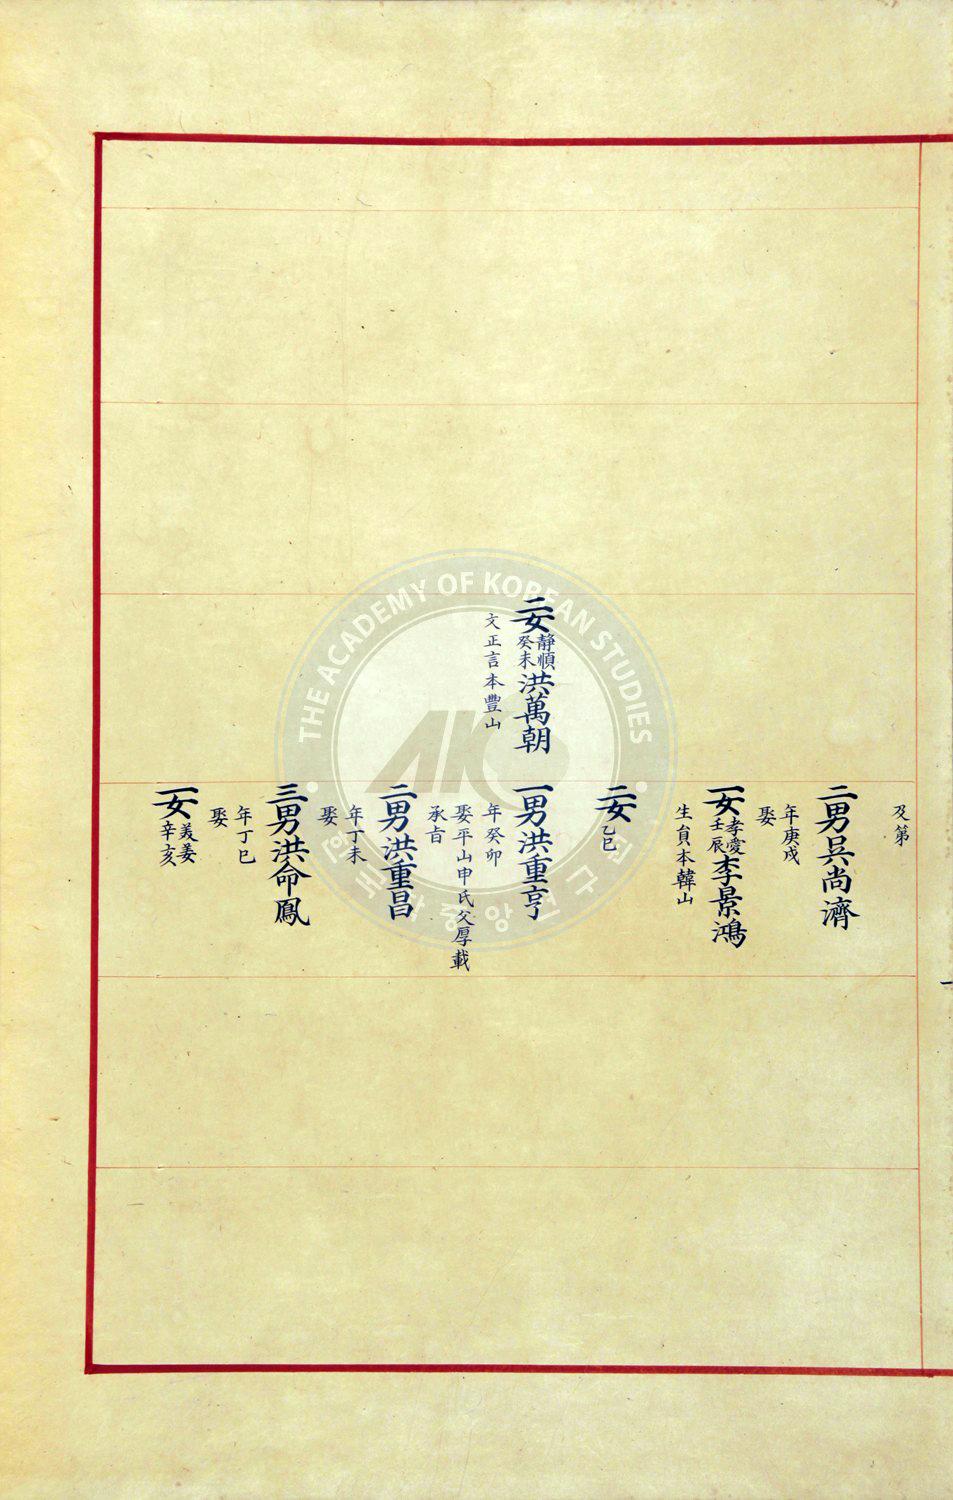 及第
二男吳尚濟
年庚戌
娶
一女孝愛壬辰李景鴻
生員本韓山
二女乙巳
二女静順癸未洪萬朝
文正言本豐山
一男洪重亨
年癸卯
娶平山申氏父厚載
承旨
二男洪重昌
年丁未
娶
三男洪命鳳
年丁巳
娶
一女美姜辛亥
THE ACADEMY OF KOREAN STUDIES
AKS